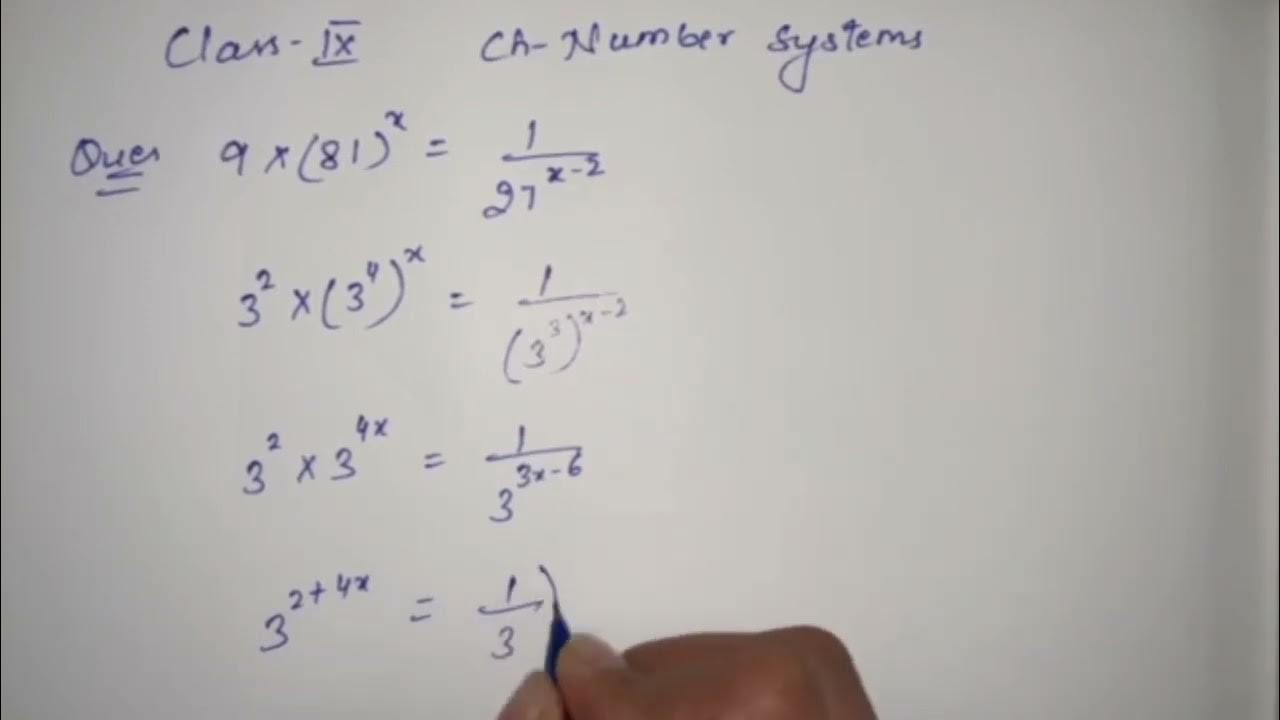 Class-IX Ch-Number Systems
Ques 9 × (81)^x = 1/27^(x-2)
3^2 × (3^4)^x = 1/(3^3)^(x-2)
3^2 × 3^(4x) = 1/3^(3x-6)
3^(2+4x) = 1/3)